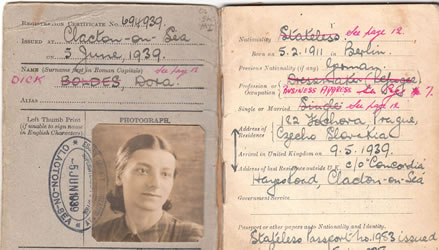 REGISTRATION CERTIFICATE No. 694939.
ISSUED AT Clacton-on-Sea
ON 5 June, 1939.
NAME (Surname first in Roman Capitals) See page 12
DICK BONDES, Dora.
ALIAS
Left Thumb Print
(if unable to sign name
in English Characters).
PHOTOGRAPH.
CLACTON-ON-SEA
5-JUN 1939
Nationality Stateless See page 12.
Born on 5.2.1911 in Berlin.
Previous Nationality (if any)
German.
Profession or Occupation Dressmaker (Refugee)
BUSINESS APPRISE
Single or Married Single See page 12
Address of Residence
182 Sochova, Prague,
Czecho Slovakia
Arrived in United Kingdom on 9.5.1939.
Address of last Residence outside U.K. c/o "Concordia"
Clacton-on-Sea
Government Service
Passport or other papers as to Nationality and Identity.
Stateless Passport No. 1953 issued